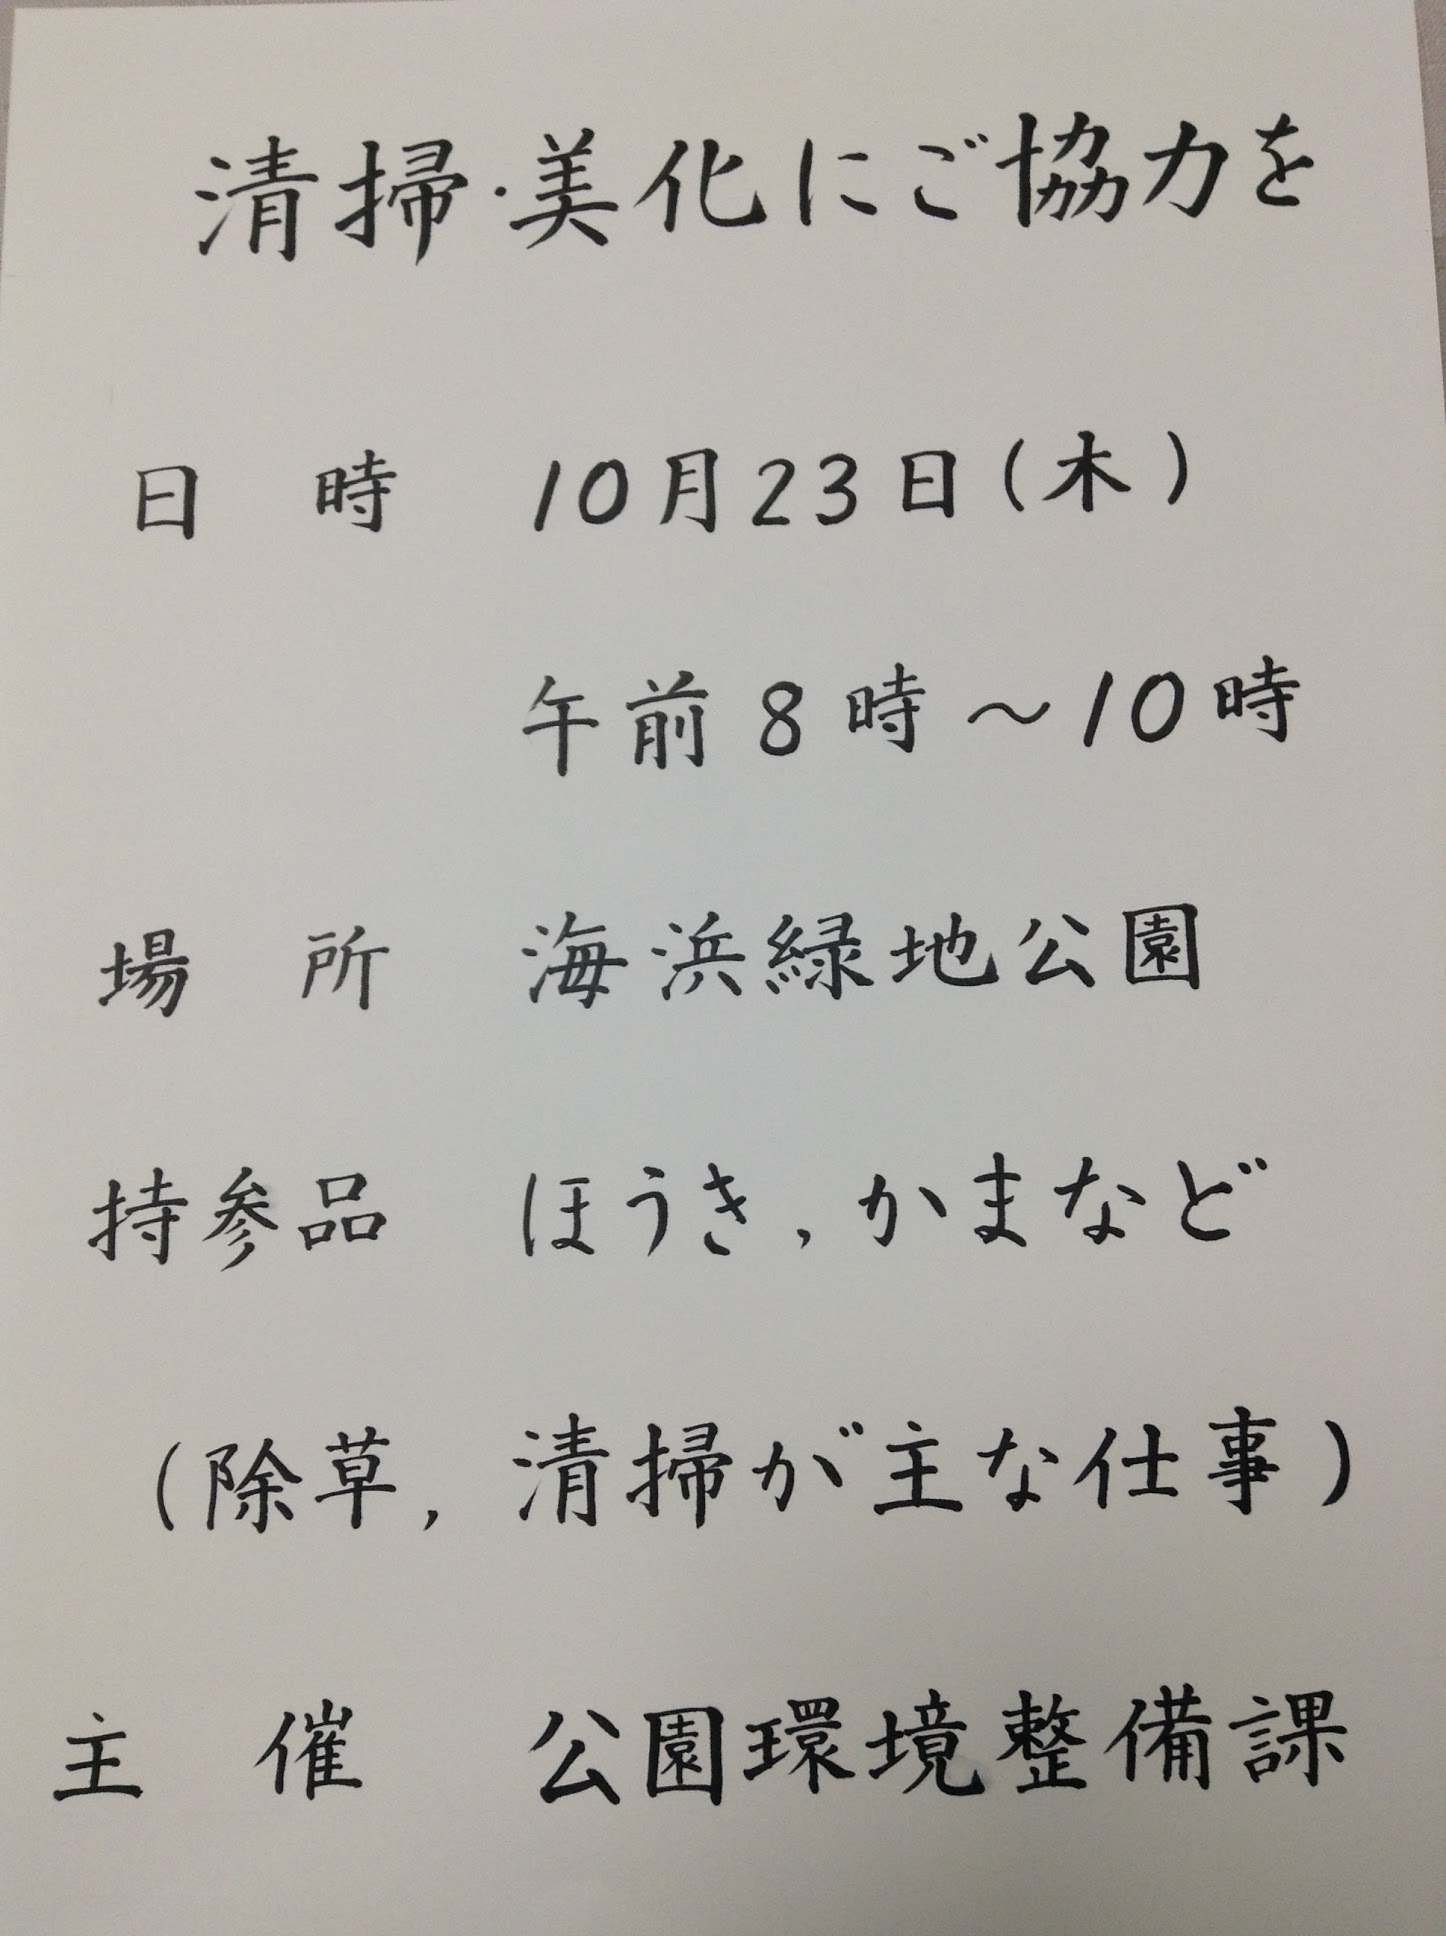 清掃・美化にご協力を
日　時　10月23日(木)
午前8時～10時
場　所　海浜緑地公園
持参品　ほうき,かまなど
(除草,清掃が主な仕事)
主　催　公園環境整備課